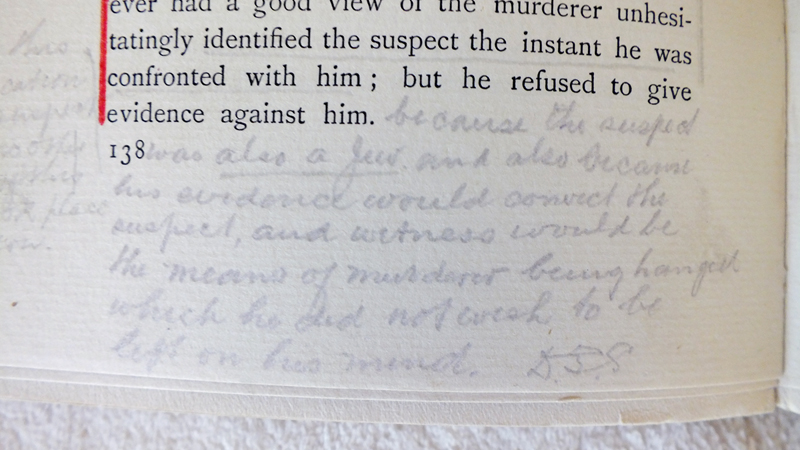 ever had a good view of the murderer unhesi-
tatingly identified the suspect the instant he was
confronted with him ; but he refused to give
evidence against him. because the suspect
138 was also a Jew and also because
his evidence would convict the
suspect, and witness would be
the means of murderer being hanged
which he did not wish to be
left on his mind. D.S.S
this
cation
no other
of this
ok place